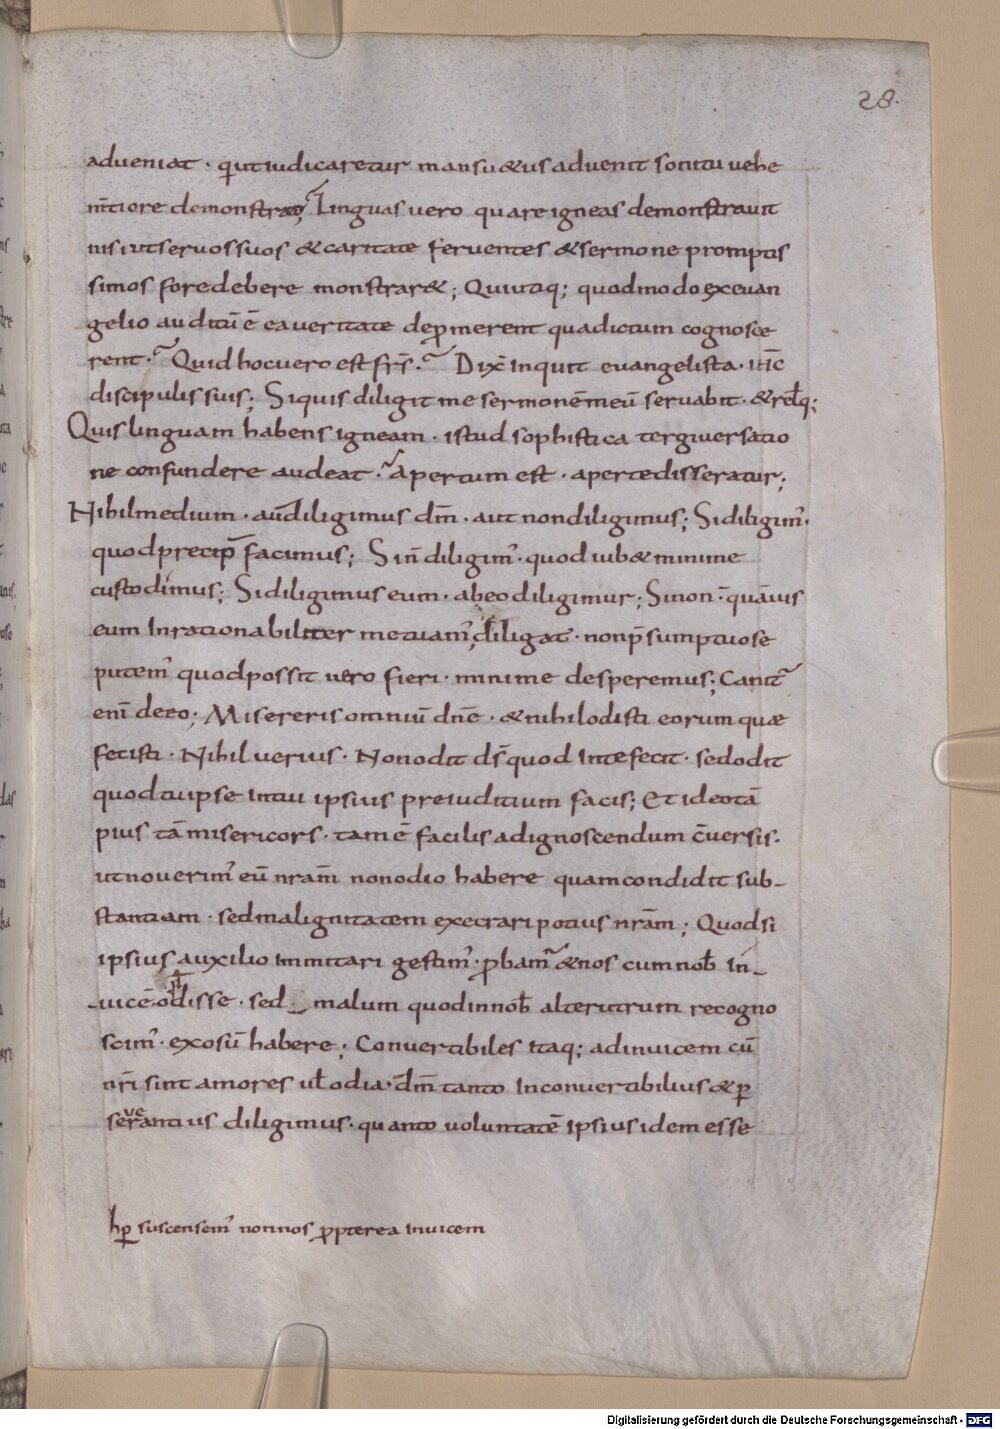 28.
adueniat · qui iudicaretur mansu&us aduenit sonitu uehe
m̄tiore demonstrat; Linguas uero quare igneas demonstrauit
nisi ut seruos suos & caritate feruentes & sermone promptis
simos fore debere monstrar&; Qui utiq; quod modo ex euan
gelio auditū ē ea ueritate dep̄merent qua dictum cognosce
rent · Quid hoc uero est frs̄. Dix̄ inquit euangelista · ih̄c
discipulis suis; Siquis diligit me sermonē meū seruabit · & rl̄q;
Quis linguam habens igneam · istud sophistica tergiuersatio
ne confundere audeat · Apertum est · aperte disseratur;
Nihil medium · aut diligimus dm̄ · aut non diligimus; Si diligim᾿·
quod precip̄ facimus; Sin̄ diligim᾿· quod iub& minime
custodimus; Si diligimus eum · ab eo diligimur; Sinon · quāuis
eum Inrationabiliter metuam᾿; diligat · non p̄sumptuose
putem᾿ quod possit uero fieri · minime desperemus; Canit᾿
enī de eo; Misereris omniū dn̄e · & nihil odisti eorum quæ
fecisti · Nihil uerius · Non odit ds̄ quod In te fecit · sed odit
quod tu ipse In tui ipsius preiuditium facis; Et ideo tā
pius tā misericors · tam ē facilis ad ignoscendum c̄uersis.
ut nouerim᾿ eū nr̄am non odio habere quam condidit sub-
stantiam · sed malignitatem execrari potius nr̄am; Quod si
ipsius auxilio Immitari gestim᾿· p̱bam᾿ & nos cum nob̄ In-
uicē odisse · sed malum quod in nob̄ alterutrum recogno
scim᾿· exosū habere; Conuertibiles Itaq; adinuicem cū
nr̄i sint amores ul̄ odia · dm̄ tanto Inconuertibilius & p̱
seuerantius diligimus · quanto uoluntatē ipsius idem esse
hp̱ suscensem᾿ non nos p̱pterea inuicem
Digitalisierung gefördert durch die Deutsche Forschungsgemeinschaft - DFG